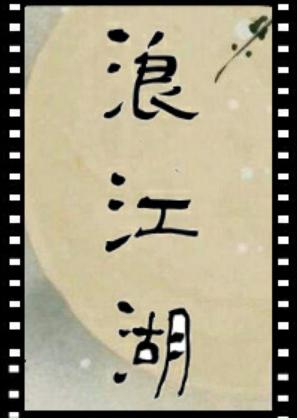 浪江湖